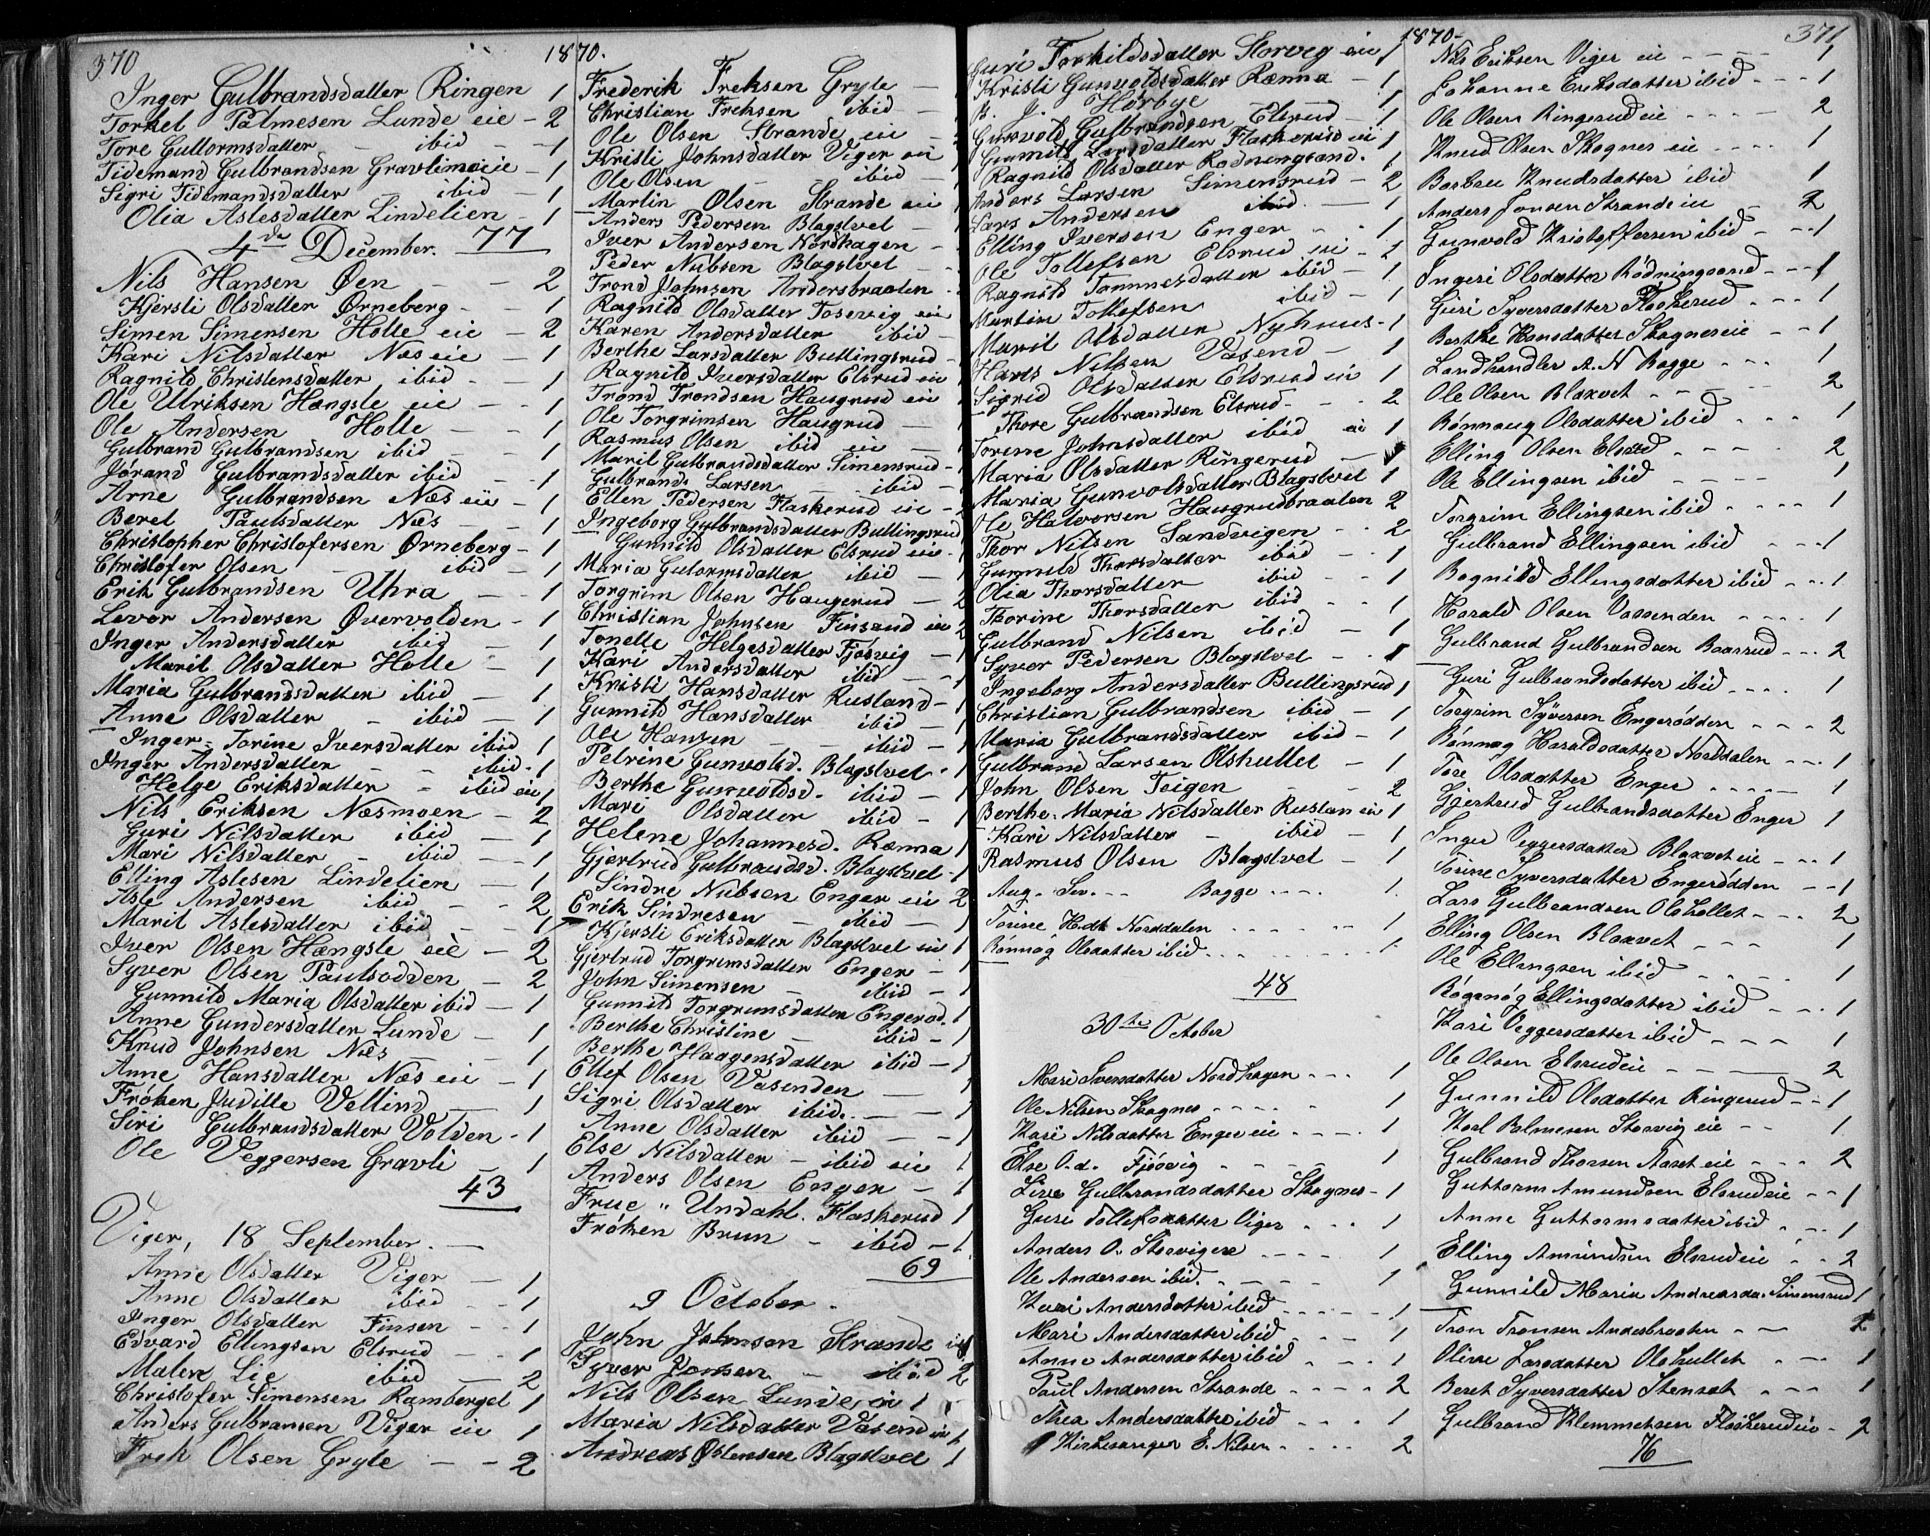 370
1870.
Inger Gulbrandsdatter Ringen 1
Torkel Palmesen Lunde eie - 2
Tore Guttormsdatter - ibid - 1
Tidemand Gulbrandsen Gravlimoeie - 1
Sigri Tidemandsdatter - ibid - 1
Olia Aslesdatter Lindelien - 1
4de December. 77
Nils Hansen Øen - - 2
Kjersti Olsdatter Ørneberg - - 1
Simen Simensen Holte eie - 2
Kari Nilsdatter Næs eie - 1
Ragnild Christensdatter ibid - 1
Ole Ulriksen Hængsle eie - 1
Ole Andersen Holte - - 1
Gulbrand Gulbrandsen ibid - - 1
Jørand Gulbrandsdatter ibid - - 1
Arne Gulbrandsen Næs eie - 1
Beret Paulsdatter Næs - - 1
Christopher Christofersen Ørneberg - 1
Christofer Olsen - ibid - 1
Erik Gulbrandsen Uhra - - 1
Levor Andersen Øvervolden - 1
Inger Andersdatter ibid - 1
Marit Olsdatter Holte - 1
Maria Gulbrandsdatter ibid - 1
Anne Olsdatter - ibid - 1
Inger-Torine Iversdatter ibid 1
Inger Andersdatter - - ibid - 1
Helge Eriksdatter - ibid eie 1
Nils Eriksen Næsmoen - 2
Guri Nilsdatter ibid - 1
Mari Nilsdatter - ibid - - 1
Elling Aslesen Lindelien - - 1
Asle Andersen ibid - - 2
Marit Aslesdatter ibid - - 1
Iver Olsen Hængsle eie - 2
Syver Olsen Paulsodden - 2
Gunnild Maria Olsdatter ibid - 1
Anne Gundersdatter Lunde - 1
Knud Johnsen Næs - - 1
Anne Hansdatter Næs eie - 1
Frøken Juditte Vellind - 1
Siri Gulbrandsdatter Volden - 1
Ole Veggersen Gravli - 1
43
Viger, 18 September. -
Anne Olsdatter Viger - 1
Anne Olsdatter ibid - - 1
Inger Olsdatter Finsen - - 1
Edvard Ellingsen Elsrud - - 1
Malene Lie ibid - 2
Christofer Simensen Ramberget 1
Anders Gulbransen Viger eie 1
Frek Olsen Gryte - - 2
Frederik Freksen Gryte - 1
Christian Freksen ibid - 1
Ole Olsen Strande eie -
Kristi Johnsdatter Viger eie
Ole Olsen - - ibid - 1
Martin Olsen Strande eie 1
Anders Pedersen Blagstvet -
Iver Andersen Nordhagen -
Peder Nubsen Blagstvet -
Trond Johnsen Andersbraaten -
Ragnild Olsdatter Tosevig eie
Karen Andersdatter ibid -
Berthe Larsdatter Buttingsrud -
Ragnild Iversdatter Elsrud eie 1
Trond Trondsen Haugrud eie -
Ole Torgrimsen Haugrud - 1
Rasmus Olsen ibid eie - 1
Marit Gulbrandsdatter Simensrud - 1
Gulbrands Larsen - ibid - 1
Ellen Pedersen Flaskerud eie - 2
Ingeborg Gulbrandsdatter Buttingsrud
Gunnild Olsdatter Elsrud eie - 1
Maria Gutormsdatter ibid - 1
Torgrim Olsen Haugerud - 2
Christian Johnsen Finsand eie 2
Tonette Helgesdatter Fjøsvig - 1
Kari Andersdatter ibid - - 1
Kristi Hansdatter Rustand - 1
Gunnild Hansdatter ibid - 1
Ole Hansen - - ibid - 1
Petrine Gunvolsd. Blagstvet - 1
Berthe Gunvoldsd. ibid - 1
Mari Olsdatter ibid - 1
Helene Johannesd. Rænna 1
Gjertrud Gulbrandsd. Blagstvet - 1
Sindre Nubsen Enger eie 2
Erik Sindresen - ibid - 1
Kjersti Eriksdatter Blagstvet eie 1
Gjertrud Torgrimsdatter Enger - 1
John Simensen - ibid - 1
Gunnild Torgrimsdatter Engerod. 1
Berthe Christine - ibid - 1
Berthe Haagensdatter ibid - 1
Ellef Olsen Vasenden - - 1
Sigri Olsdatter ibid. - - 1
Anne Olsdatter ibid - - 1
Else Nilsdatter - ibid eie 1
Anders Olsen Enger - 1
Frue " Undahl. Flaskerud 1
Frøken Brun - ibid - 1
69
9 October.
John Johnsen Strande eie
Syver Jonsen - ibid 2
Nils Olsen Lunde eie 1
Maria Nilsdatter Vasend eie 1
Andreas Østensen Blagstvet 1
1870-
371
Guri Torkildsdatter Storvig eie 1
Kristi Gunvoldsdatter Rænna - 1
B. J. Hørbye 1
Gunvold Gulbrandsen Elsrud - 1
Gunnild Larsdatter Flaskerud eie 1
Ragnild Olsdatter Rødningsand. 1
Anders Larsen Simensrud - 2
Lars Andersen ibid. - 1
Elling Iversen Enger - - 1
Ole Tollefsen Elsrud eie - 2
Ragnild Tommesdatter ibid - 1
Martin Tollefsen ibid - 1
Marit Olsdatter Nyhuus - 1
Hans Nilsen Vasend - 1
Sigrid Olsdatter Elsrud eie 1
Thore Gulbrandsen Elsrud - - - 2
Torine Johnsdatter ibid eie 1
Maria Olsdatter Ringerud - 1
Maria Gunvolsdatter Blagstvet 1
Ole Halvorsen Haugrudbraaten 2
Thor Nilsen Sandvigen - - 2
Gunnild Thorsdatter ibid - 1
Olia Thorsdatter ibid - - 1
Thorine Thorsdatter ibid - - 1
Gulbrand Nilsen ibid - 1
Syver Pedersen Blagstvet - - 1
Ingeborg Andersdatter Buttingsrud 1
Christian Gulbrandsen ibid - 1
Maria Gulbrandsdatter ibid - 1
Gulbrand Larsen Olshullet - 1
John Olsen Teigen - - 2
Berthe-Maria Nilsdatter Rustan eie 1
Kari Nilsdatter - ibid - 1
Rasmus Olsen Blagstvet - 1
Aug. Sev. - - Bagge - - - - 1.
Torine Hdt Norddalen - - - - - 1
Rønnog Olsdatter ibid - - - - - - 1.
48
30te October
Mari Iversdatter Nordhagen - - - 1
Ole Nilsen Skagnes - - - - - 1
Kari Nilsdatter Enger eie - - - - 1
Else O.d. Fjøsvig - - - - 1
Live Gulbrandsdatter Skagnes - 1
Guri Tollefsdatter Viger - - - 1
Anders O. Storvigere - - - - 1
Ole Andersen ibid. - - - - 1
Kari Andersdatter ibid - - - - - 1
Mari Andersdatter ibid - - - - 1
Anne Andersdatter ibid - - - - 1
Paul Andersen Strande - - - - 2
Thea Andersdatter ibid - - - - 1
Kirkesanger E. Nilsen - - - - 2
Nils Eriksen Viger eie - - - - 1
Johanne Eriksdatter ibid - - - 1
Ole Olsen Ringerud eie - - - - - 2
Knud Olsen Skagnes eie - - - - 1
Barbro Knudsdatter ibid 1
Anders Jonsen Strande eie - 2
Gunvold Kristoffersen ibid - - - 1
Ingeri Olsdatter Rødningsand - - - 1
Guri Syversdatter Flaskerud - - - 1
Berthe Hansdatter Skagnes eie - - 1
Landhandler A. N Bagge - - - 1
Ole Olsen Blaxvet - - - - - 2
Rønnaug Olsdatter ibid - - - 1
Elling Olsen Elsrud - - - 2
Ole Ellingsen ibid - - - - - 1
Torgrim Ellingsen ibid - - - - 1
Gulbrand Ellingsen ibid - - - - 1
Ragnild Ellingsdatter ibid - - - 1
Harald Olsen Vassenden - - - - 1
Gulbrand Gulbrandsen Baarrud - - - 2
Guri Gulbrandsdatter ibid - - - - 1
Torgrim Syversen Engerødden - - - 2
Rønnog Haraldsdatter Norddalen - - - 1
Tore Olsdatter Enger - - - - - 1
Gjertrud Gulbrandsdatter Enger 1
Inger Veggersdatter Blaxvet eie - - - 1
Torine Syversdatter Engerødden - - - 1
Lars Gulbrandsen Olshollet - - - 2
Elling Olsen Blaxvet - - - 1
Ole Ellingsen ibid - - - - - 1
Røgenøg Ellingsdatter ibid - - - 1
Kari Veggersdatter ibid - - - 1
Ole Olsen Elsrudeie - - - - - 2
Gunnild Olsdatter Ringerud - - 1
Karl Palmesen Storvig eie - - 1
Gulbrand Thorsen Aaset eie - - - 2
Guttorm Amundsen Elsrudeie - - 1
Anne Guttormsdatter ibid - - - 1
Elling Amundsen Elsrudeie - - - 2
Gunnild Maria Andreasda. Simensrud 1
Tron Tronsen Andersbraaten - - - 2
Oline Larsdatter Olshullet - - - 1
Beret Syversdatter Stensæt - - - 1
Gulbrand Klemmetsen Flaskerudeie - 2
76